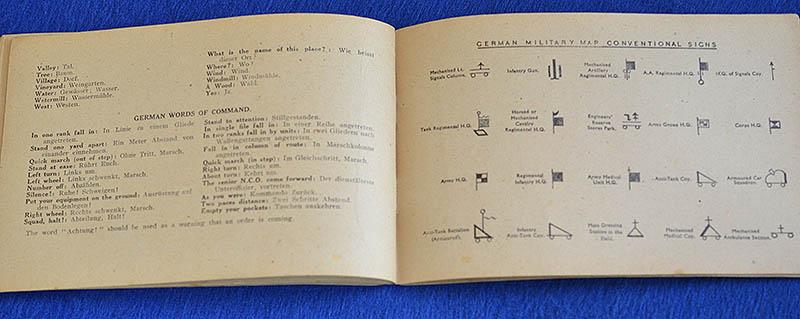 Valley: Tal.
Tree: Baum.
Village: Dorf.
Vineyard: Weingarten.
Water: Gewässer; Wasser.
Watermill: Wassermühle.
West: Westen.
What is the name of this place?: Wie heisst
dieser Ort?
Where?: Wo?
Wind: Wind.
Windmill: Windmühle.
A Wood: Wald.
Yes: Ja.
GERMAN WORDS OF COMMAND.
In one rank fall in: In Linie zu einem Gliede
angetreten.
Stand one yard apart: Ein Meter Abstand von
einander einnehmen.
Quick march (out of step): Ohne Tritt, Marsch.
Stand at ease: Rührt Euch.
Left turn: Links um.
Left wheel: Links schwenkt, Marsch.
Number off: Abzählen.
Silence!: Ruhe! Schweigen!
Put your equipment on the ground: Ausrüstung auf
den Bodenlegen!
Right wheel: Rechts schwenkt, Marsch.
Squad, halt!: Abteilung, Halt!
Stand to attention: Stillgestanden.
In single file fall in: In einer Reihe angetreten.
In two ranks fall in by units: In zwei Gliedern nach
angetreten.
Fall in in column of route: In Marschkolonne
angetreten.
Quick march (in step): Im Gleichschritt, Marsch.
Right turn: Rechts um.
About turn: Kehrt um.
The senior N.C.O. come forward: Der dienstälteste
Unteroffizier, vortreten.
As you were: Kommando Zurück.
Two paces distance: Zwei Schritte Abstand.
Empty your pockets: Taschen auskehren.
The word "Achtung!" should be used as a warning that an order is coming.
GERMAN MILITARY MAP CONVENTIONAL SIGNS
Mechanised Lt.
Signals Column.
Infantry Gun.
Mechanised
Artillery
Regimental H.Q.
A.A. Regimental H.Q.
of Signals Coy.
Tank Regimental H.Q.
Horsed or
Mechanised
Cavalry
Regimental H.Q.
Engineers'
Reserve
Stores Park.
Army Group H.Q.
Corps H.Q.
Army H.Q.
Regimental
Infantry H.Q.
Army Medical
Unit H.Q.
Anti-Tank Coy.
Armoured Car
Squadron.
Anti-Tank Battalion
(Armoured).
Infantry
Anti-Tank Coy.
Main Dressing
Station in the
Field.
Mechanised
Medical Coy.
Mechanised
Ambulance Section.